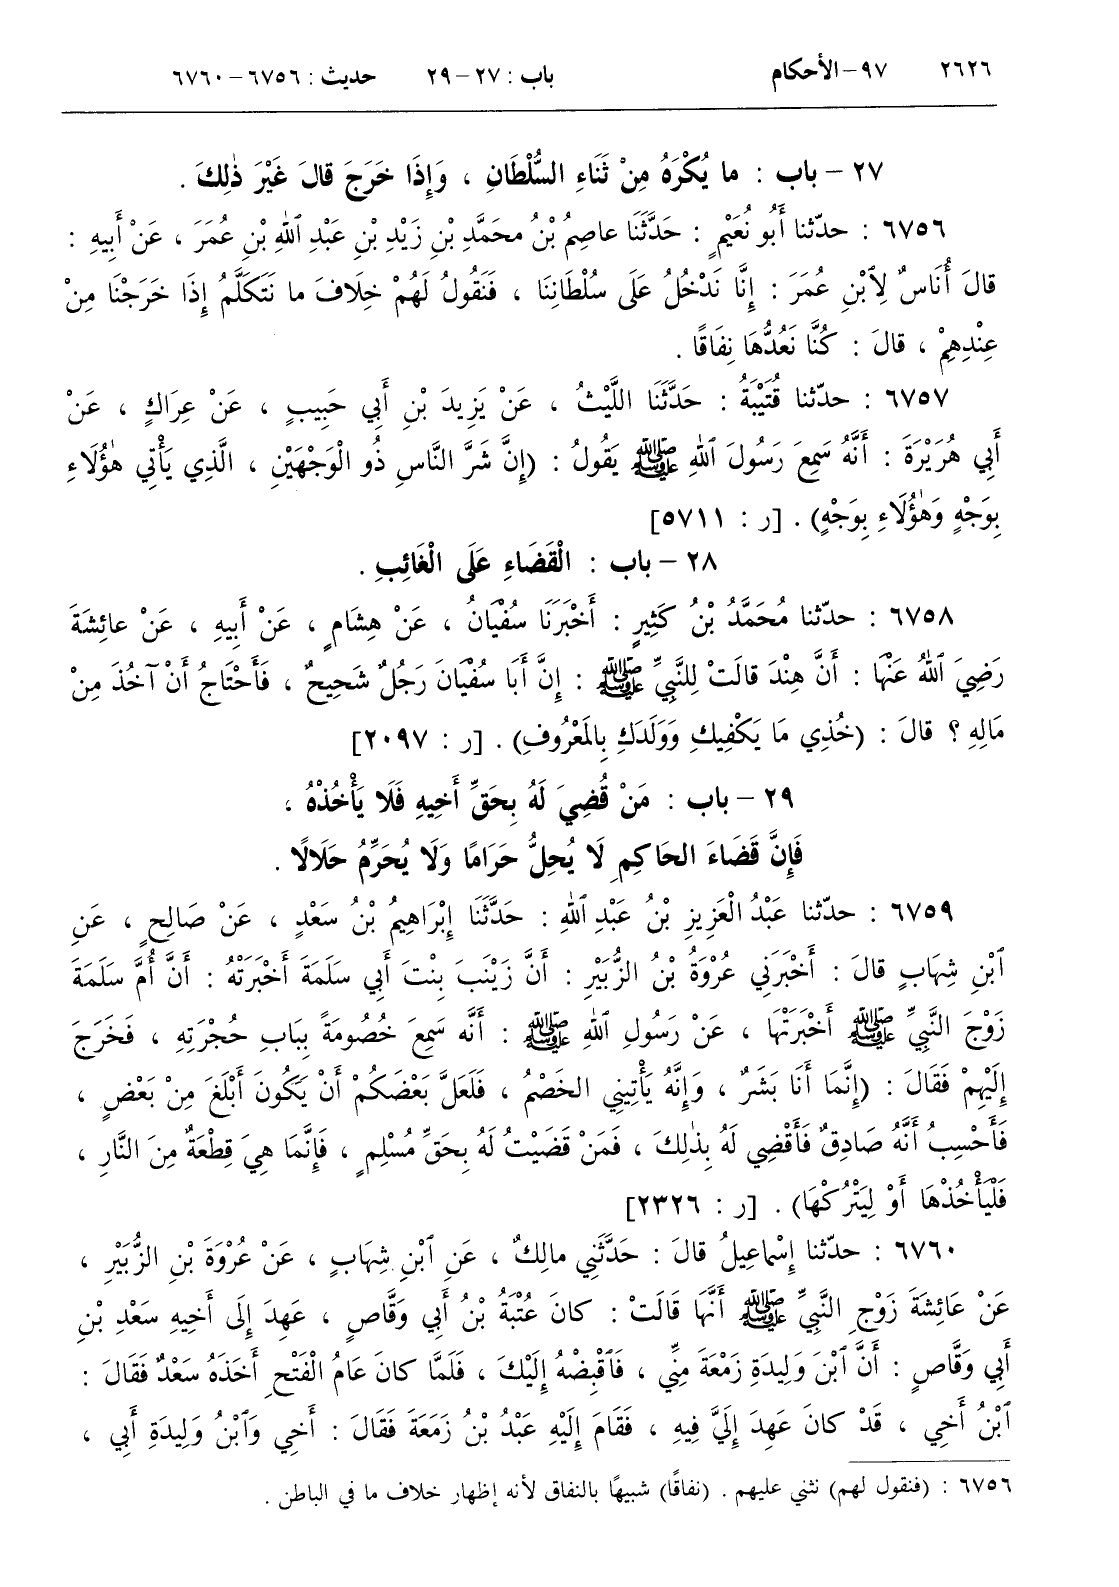 ٢٦٢٦ ٩٧–الأحكام باب : ٢٧–٢٩ حديث : ٦٧٥٦–٦٧٦٠
٢٧ – باب : ما يُكْرَهُ مِنْ ثَنَاءِ السُّلْطَانِ ، وَإِذَا خَرَجَ قالَ غَيْرَ ذٰلِكَ .
٦٧٥٦ : حدّثنا أَبُو نُعَيْمٍ : حَدَّثَنَا عاصِمُ بْنُ محَمَّدِ بْنِ زَيْدِ بْنِ عَبْدِ ٱللهِ بْنِ عُمَرَ ، عَنْ أَبِيهِ :
قالَ أُنَاسٌ لِٱبْنِ عُمَرَ : إِنَّا نَدْخُلُ عَلَى سُلْطَانِنَا ، فَنَقُولُ لَهُمْ خِلَافَ ما نَتَكَلَّمُ إِذَا خَرَجْنَا مِنْ
عِنْدِهِمْ ، قالَ : كُنَّا نَعُدُّهَا نِفَاقًا .
٦٧٥٧ : حدّثنا قُتَيْبَةُ : حَدَّثَنَا اللَّيْثُ ، عَنْ يَزِيدَ بْنِ أَبِي حَبِيبٍ ، عَنْ عِرَاكٍ ، عَنْ
أَبِي هُرَيْرَةَ : أَنَّهُ سَمِعَ رَسُولَ ٱللهِ ﷺ يَقُولُ : (إِنَّ شَرَّ النَّاسِ ذُو الْوَجْهَيْنِ ، الَّذِي يَأْتِي هٰؤُلَاءِ
بِوَجْهٍ وَهٰؤُلَاءِ بِوَجْهٍ) . [ر : ٥٧١١]
٢٨ – باب : الْقَضَاءِ عَلَى الْغَائِبِ .
٦٧٥٨ : حدّثنا مُحَمَّدُ بْنُ كَثِيرٍ : أَخْبَرَنَا سُفْيَانُ ، عَنْ هِشَامٍ ، عَنْ أَبِيهِ ، عَنْ عائِشَةَ
رَضِيَ ٱللهُ عَنْهَا : أَنَّ هِنْدَ قالَتْ لِلنَّبِيِّ ﷺ : إِنَّ أَبَا سُفْيَانَ رَجُلٌ شَحِيحٌ ، فَأَحْتَاجُ أَنْ آخُذَ مِنْ
مَالِهِ ؟ قالَ : (خُذِي مَا يَكْفِيكِ وَوَلَدَكِ بِالمَعْرُوفِ) . [ر : ٢٠٩٧]
٢٩ – باب : مَنْ قُضِيَ لَهُ بِحَقِّ أَخِيهِ فَلَا يَأْخُذْهُ ،
فَإِنَّ قَضَاءَ الحَاكِمِ لَا يُحِلُّ حَرَامًا وَلَا يُحَرِّمُ حَلَالًا .
٦٧٥٩ : حدّثنا عَبْدُ الْعَزِيزِ بْنُ عَبْدِ ٱللهِ : حَدَّثَنَا إِبْرَاهِيمُ بْنُ سَعْدٍ ، عَنْ صَالِحٍ ، عَنِ
ٱبْنِ شِهَابٍ قالَ : أَخْبَرَنِي عُرْوَةُ بْنُ الزُّبَيْرِ : أَنَّ زَيْنَبَ بِنْتَ أَبِي سَلَمَةَ أَخْبَرَتْهُ : أَنَّ أُمَّ سَلَمَةَ
زَوْجَ النَّبِيِّ ﷺ أَخْبَرَتْهَا ، عَنْ رَسُولِ ٱللهِ ﷺ : أَنَّه سَمِعَ خُصُومَةً بِبَابِ حُجْرَتِهِ ، فَخَرَجَ
إِلَيْهِمْ فَقَالَ : (إِنَّمَا أَنَا بَشَرٌ ، وَإِنَّهُ يَأْتِينِي الخَصْمُ ، فَلَعَلَّ بَعْضَكُمْ أَنْ يَكُونَ أَبْلَغَ مِنْ بَعْضٍ ،
فَأَحْسِبُ أَنَّهُ صَادِقٌ فَأَقْضِي لَهُ بِذٰلِكَ ، فَمَنْ قَضَيْتُ لَهُ بِحَقِّ مُسْلِمٍ ، فَإِنَّمَا هِيَ قِطْعَةٌ مِنَ النَّارِ ،
فَلْيَأْخُذْهَا أَوْ لِيَتْرُكْهَا) . [ر : ٢٣٢٦]
٦٧٦٠ : حدّثنا إِسْماعِيلُ قالَ : حَدَّثَنِي مالِكٌ ، عَنِ ٱبْنِ شِهَابٍ ، عَنْ عُرْوَةَ بْنِ الزُّبَيْرِ ،
عَنْ عَائِشَةَ زَوْجِ النَّبِيِّ ﷺ أَنَّهَا قَالَتْ : كانَ عُتْبَةُ بْنُ أَبِي وَقَّاصٍ ، عَهِدَ إِلَى أَخِيهِ سَعْدِ بْنِ
أَبِي وَقَّاصٍ : أَنَّ ٱبْنَ وَلِيدَةِ زَمْعَةَ مِنِّي ، فَٱقْبِضْهُ إِلَيْكَ ، فَلَمَّا كانَ عَامُ الْفَتْحِ أَخَذَهُ سَعْدٌ فَقَالَ :
ٱبْنُ أَخِي ، قَدْ كانَ عَهِدَ إِلَيَّ فِيهِ ، فَقَامَ إِلَيْهِ عَبْدُ بْنُ زَمَعَةَ فَقَالَ : أَخِي وَٱبْنُ وَلِيدَةِ أَبِي ،
٦٧٥٦ : (فنقول لهم) نثني عليهم . (نفاقًا) شبيهًا بالنفاق لأنه إظهار خلاف ما في الباطن .